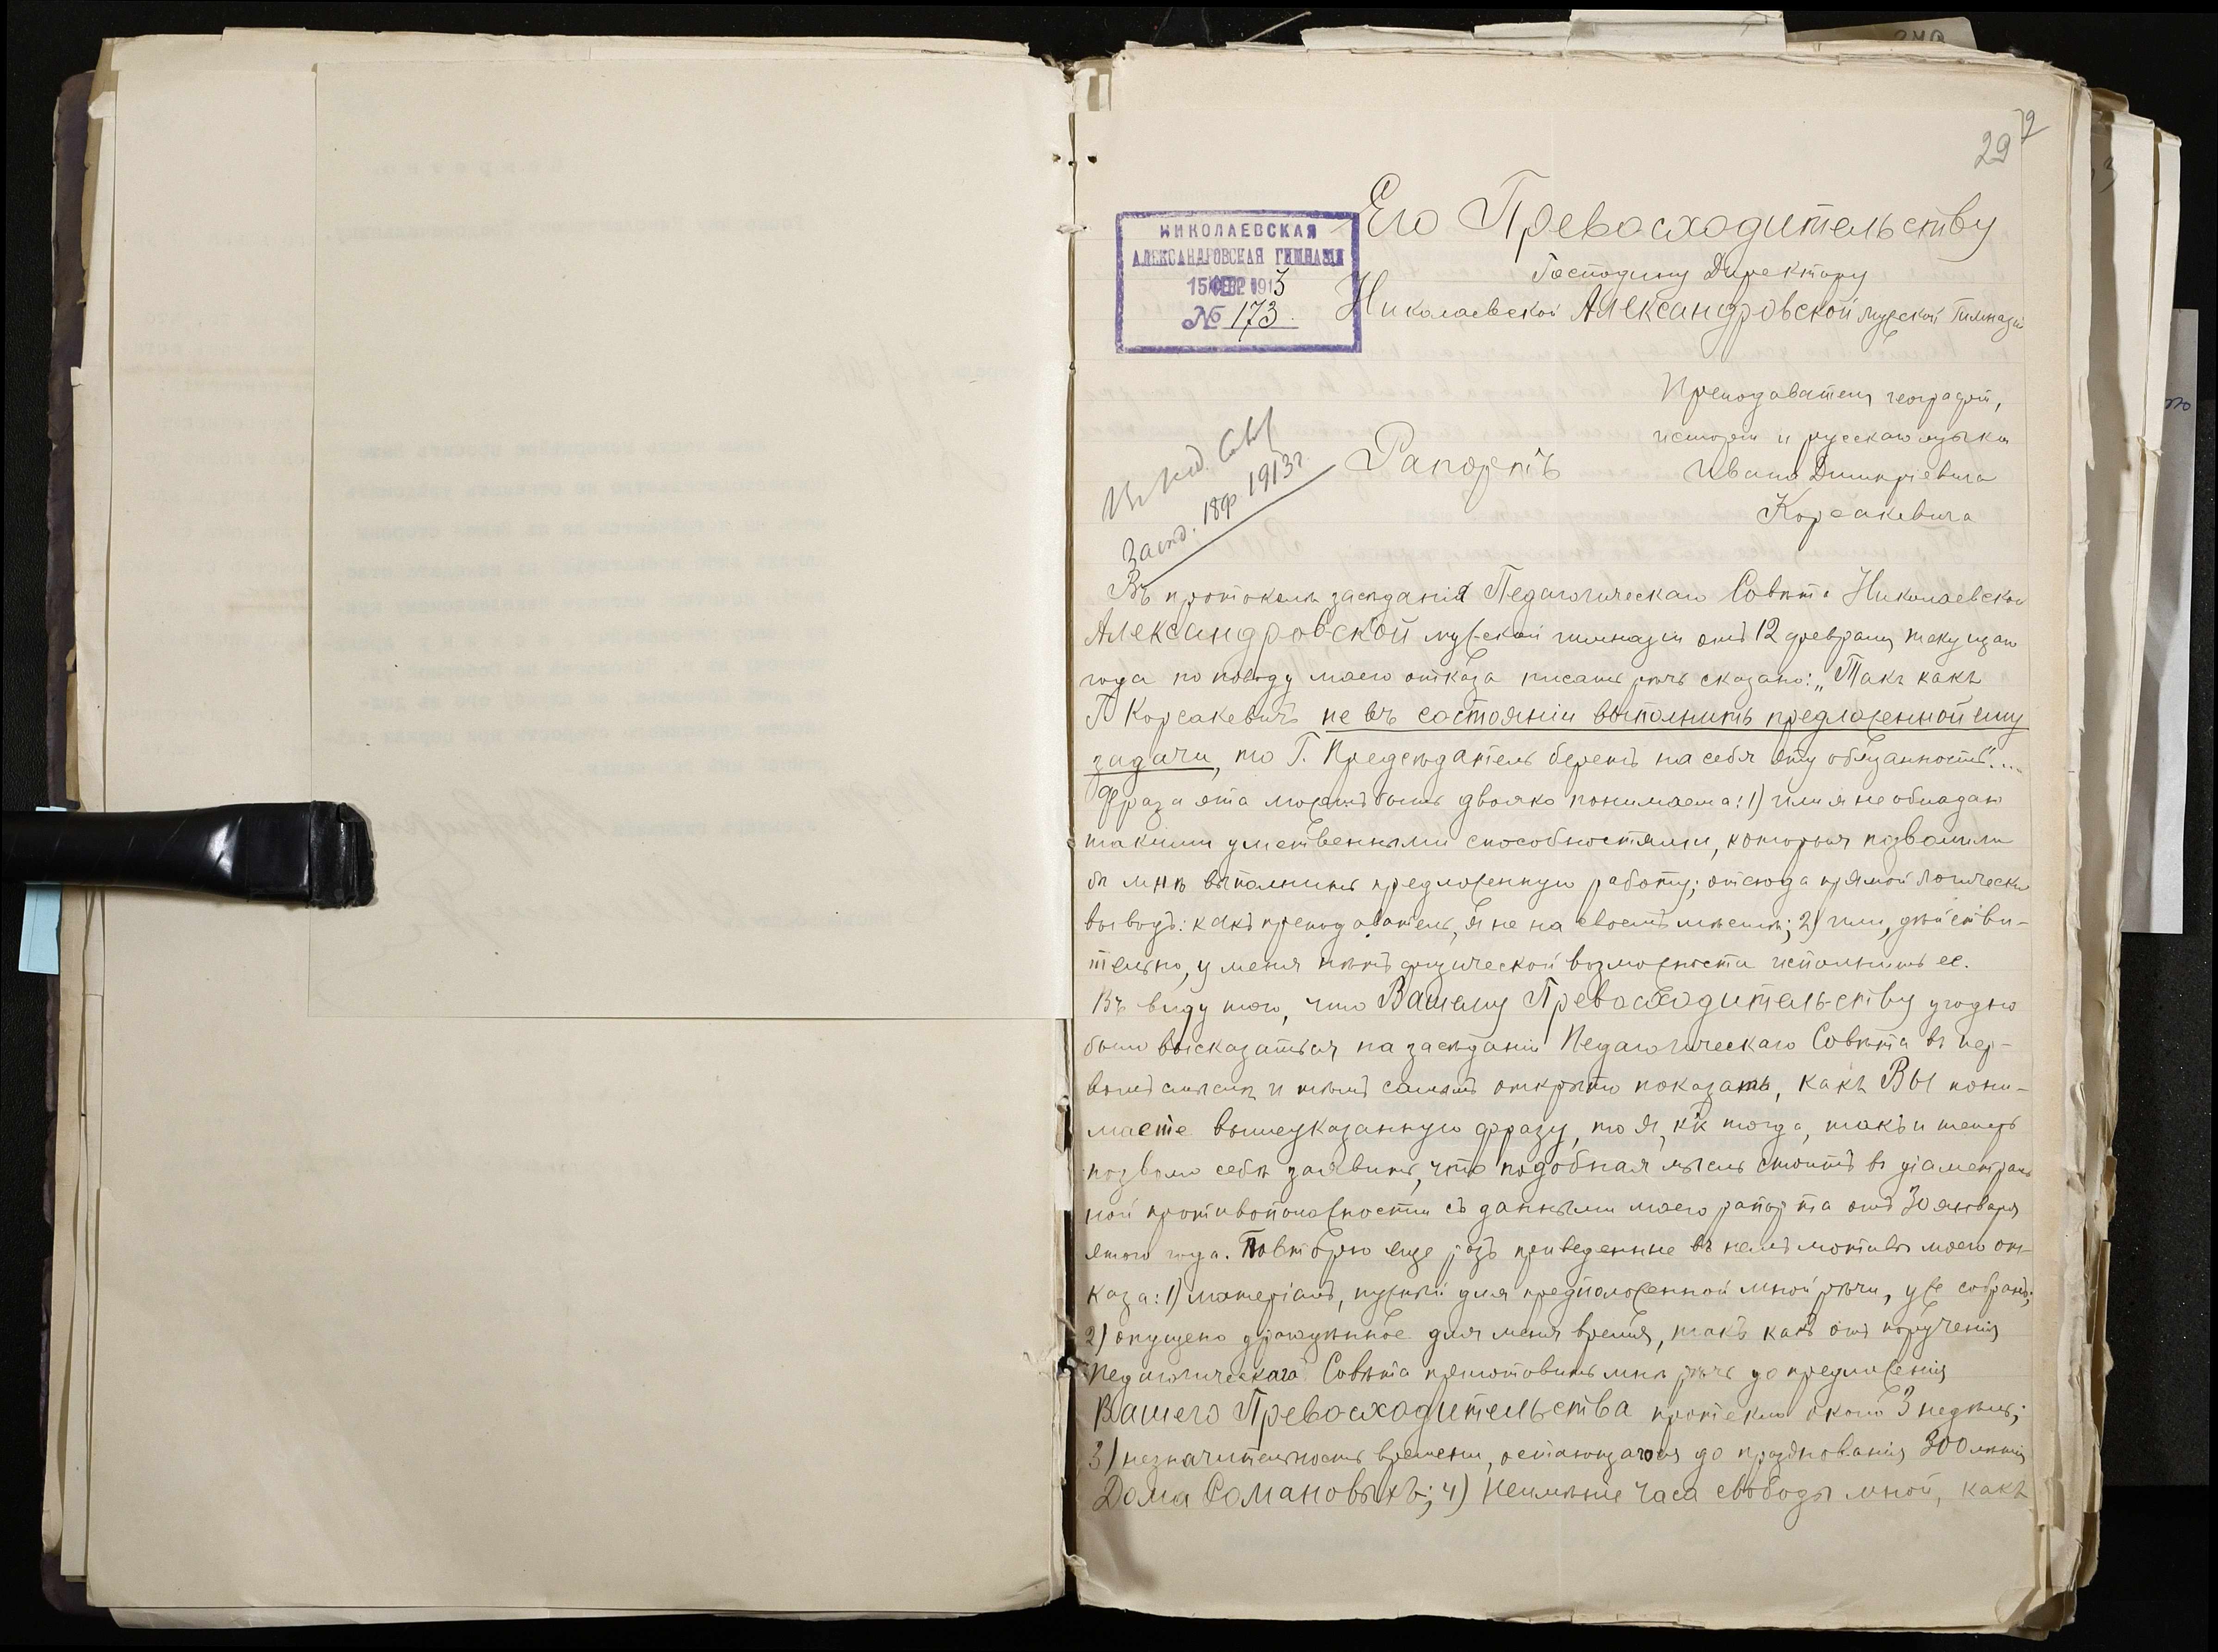 29
Его Превосходительству
Господину Директору
Николаевской Александровской мужской гимназіи
НИКОЛАЕВСКАЯ
АЛЕКСАНДРОВСКАЯ ГИМНАЗІЯ
15 1913
№ 173.
Преподавателя географіи,
исторіи и русскаго языка
Ивана Димитріевича
Корсакевича
Рапортъ
Засѣд. 18 ф. 1913 г.
Въ протоколѣ засѣданія Педагогическаго Совѣта Николаевской
Александровской мужской гимназіи отъ 12 февраля текущаго
года по поводу моего отказа писать рѣчь сказано: „Такъ какъ
Г. Корсакевичъ не въ состояніи выполнить предложенной ему
задачи, то Г. Предсѣдатель беретъ на себя эту обязанность"....
Фраза эта можетъ быть двояко понимаема: 1) или я не обладаю
такими умственными способностями, которыя позволили
бы мнѣ выполнить предложенную работу; отсюда прямой логическій
выводъ: какъ преподаватель, я не на своемъ мѣстѣ; 2) или, дѣйстви-
тельно, у меня нѣтъ физической возможности исполнить ее.
Въ виду того, что Вашему Превосходительству угодно
было высказаться на засѣданіи Педагогическаго Совѣта въ пер-
вомъ смыслѣ и тѣмъ самымъ открыто показать, какъ Вы пони-
маете вышеуказанную фразу, то я, к̾къ тогда, такъ и теперь
позволю себѣ заявить, что подобная мысль стоитъ въ діаметраль
ной противоположности съ данными моего рапорта отъ 30 января
этого года. Повторю еще разъ приведенные въ немъ мотивы моего от-
каза: 1) матеріалъ, нужный для предположенной мной рѣчи, уже собранъ;
2) опущено драгоцѣнное для меня время, такъ какъ отъ порученія
Педагогическаго Совѣта приготовить мнѣ рѣчь до предложенія
Вашего Превосходительства протекло около 3 недѣль;
3) незначительность времени, остающагося до празднованія 300 лѣтія
Дома Романовыхъ; 4) неимѣніе часа свободы мной, какъ